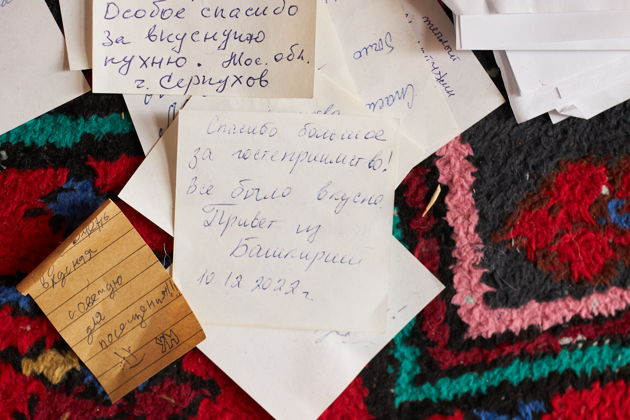 Особое спасибо
за вкусную
кухню. Мос. обл.
г. Серпухов
Спасибо большое
за гостеприимство!
Всё было вкусно
Привет из
Башкирии
10 12 2022 г.
очень
вкусная
советую
для
посещения!!!
было
Спаси